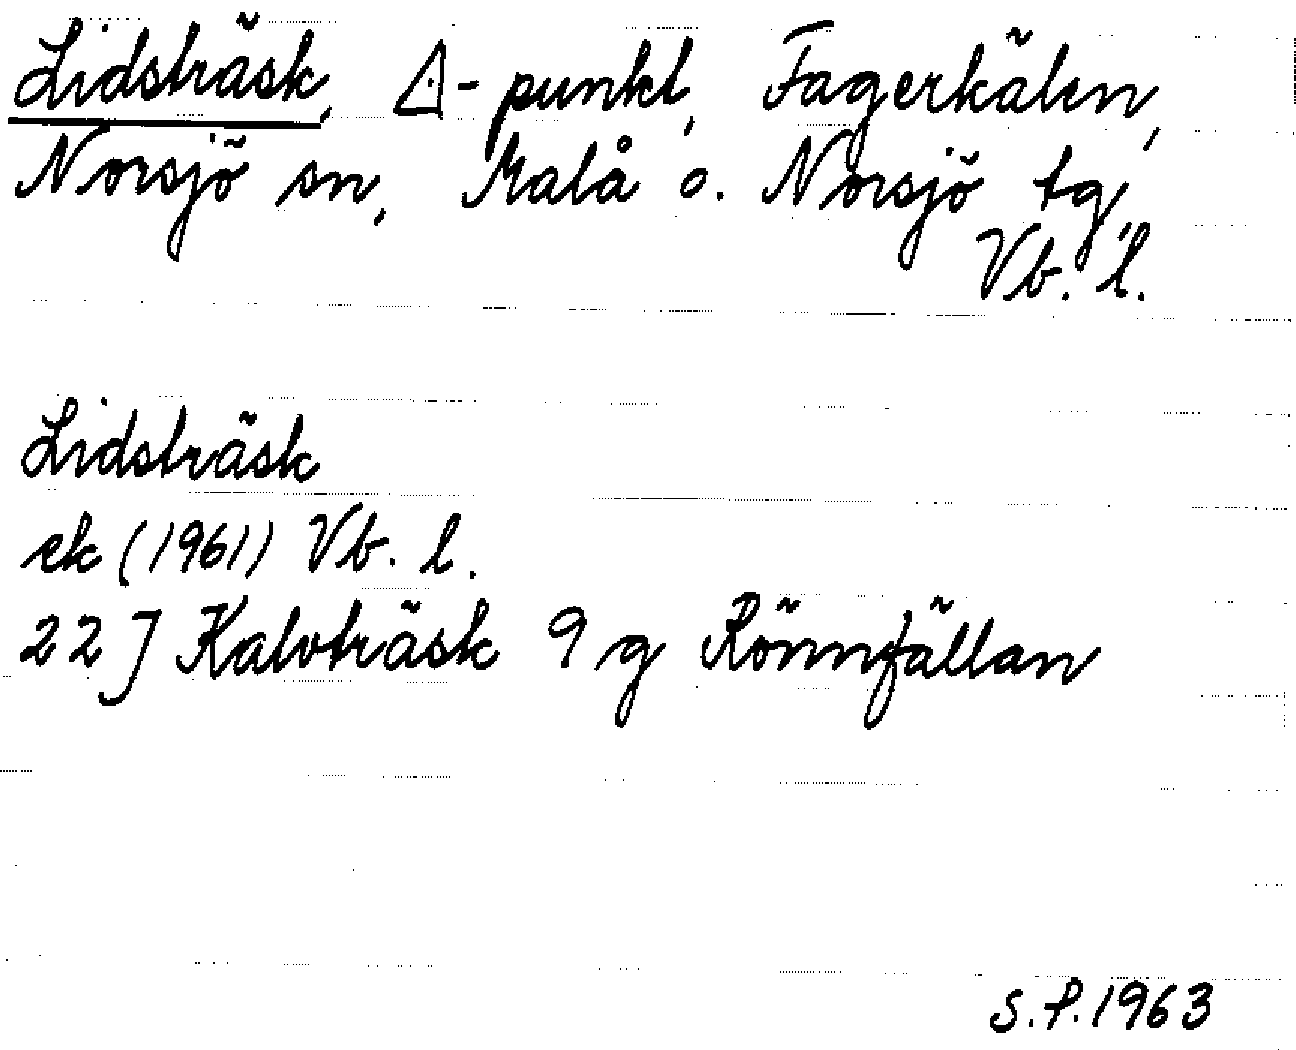 Lidsträsk, △-punkt, Fagerkälen,
Norsjö sn, Malå o. Norsjö tg,
Vb. l.
Lidsträsk
ek (1961) Vb. l.
22 J Kalvträsk 9 g Rönnfällan
S.P. 1963